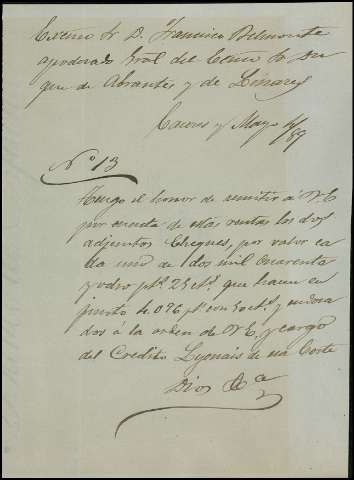 Excmo Sr D. Francisco Belmonte
apoderado Gral del Excmo Sr Du
que de Abrantes y de Linares
Caceres y Mayo 4/89
Nº 13
Tengo el honor de remitir á V. E
por cuenta de estas rentas los dos
adjuntos Cheques, por valor ca
da uno de dos mil cuarenta
y ocho pts. 25 cts. que hacen en
junto 4.096 pts con 50 cts. y endosa
dos á la orden de V. E. y cargo
del Credito Lyonais de esa Corte
Dios &a